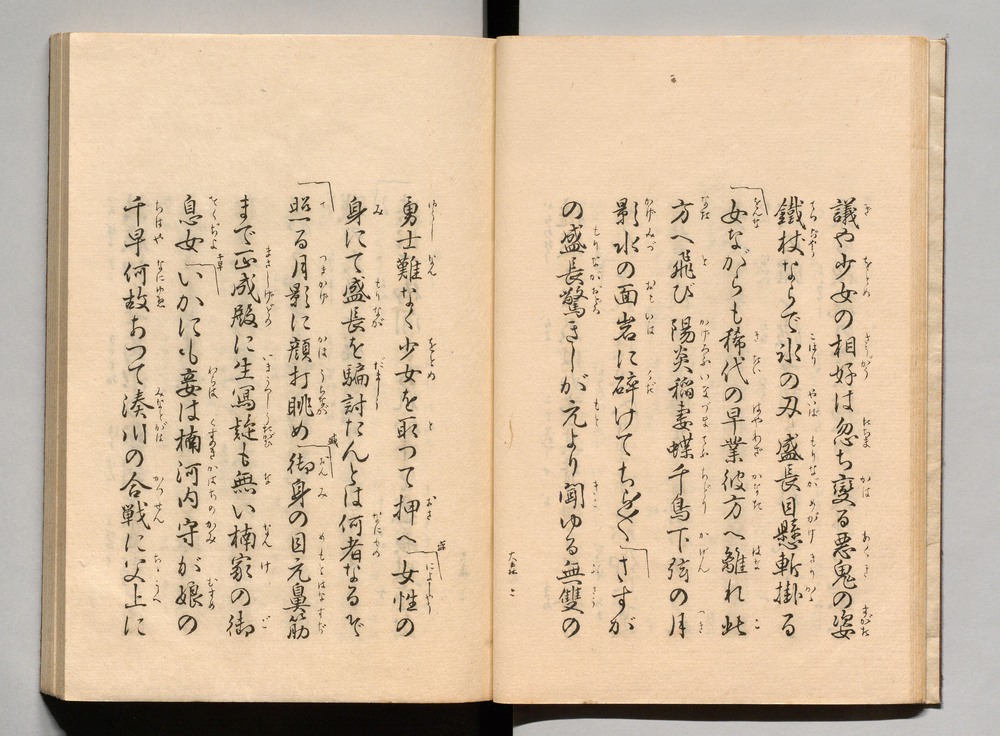 議や少女の相好は忽ち変る悪鬼の姿
鐵杖ならで氷の刃盛長目懸斬掛る
女ながらも稀代の早業彼方へ離れ此
方へ飛び陽炎稲妻蝶千鳥下弦の月
影水の面岩に砕けてちら〳〵さすが
の盛長驚きしが元より聞ゆる無雙の
勇士難なく少女を取つて押へ女性の
身にて盛長を騙討たんとは何者なるぞ
照る月影に顔打眺め御身の目元鼻筋
まで正成殿に生寫疑も無い楠家の御
息女いかにも妾は楠河内守が娘の
千早何故あつて湊川の合戦に父上に